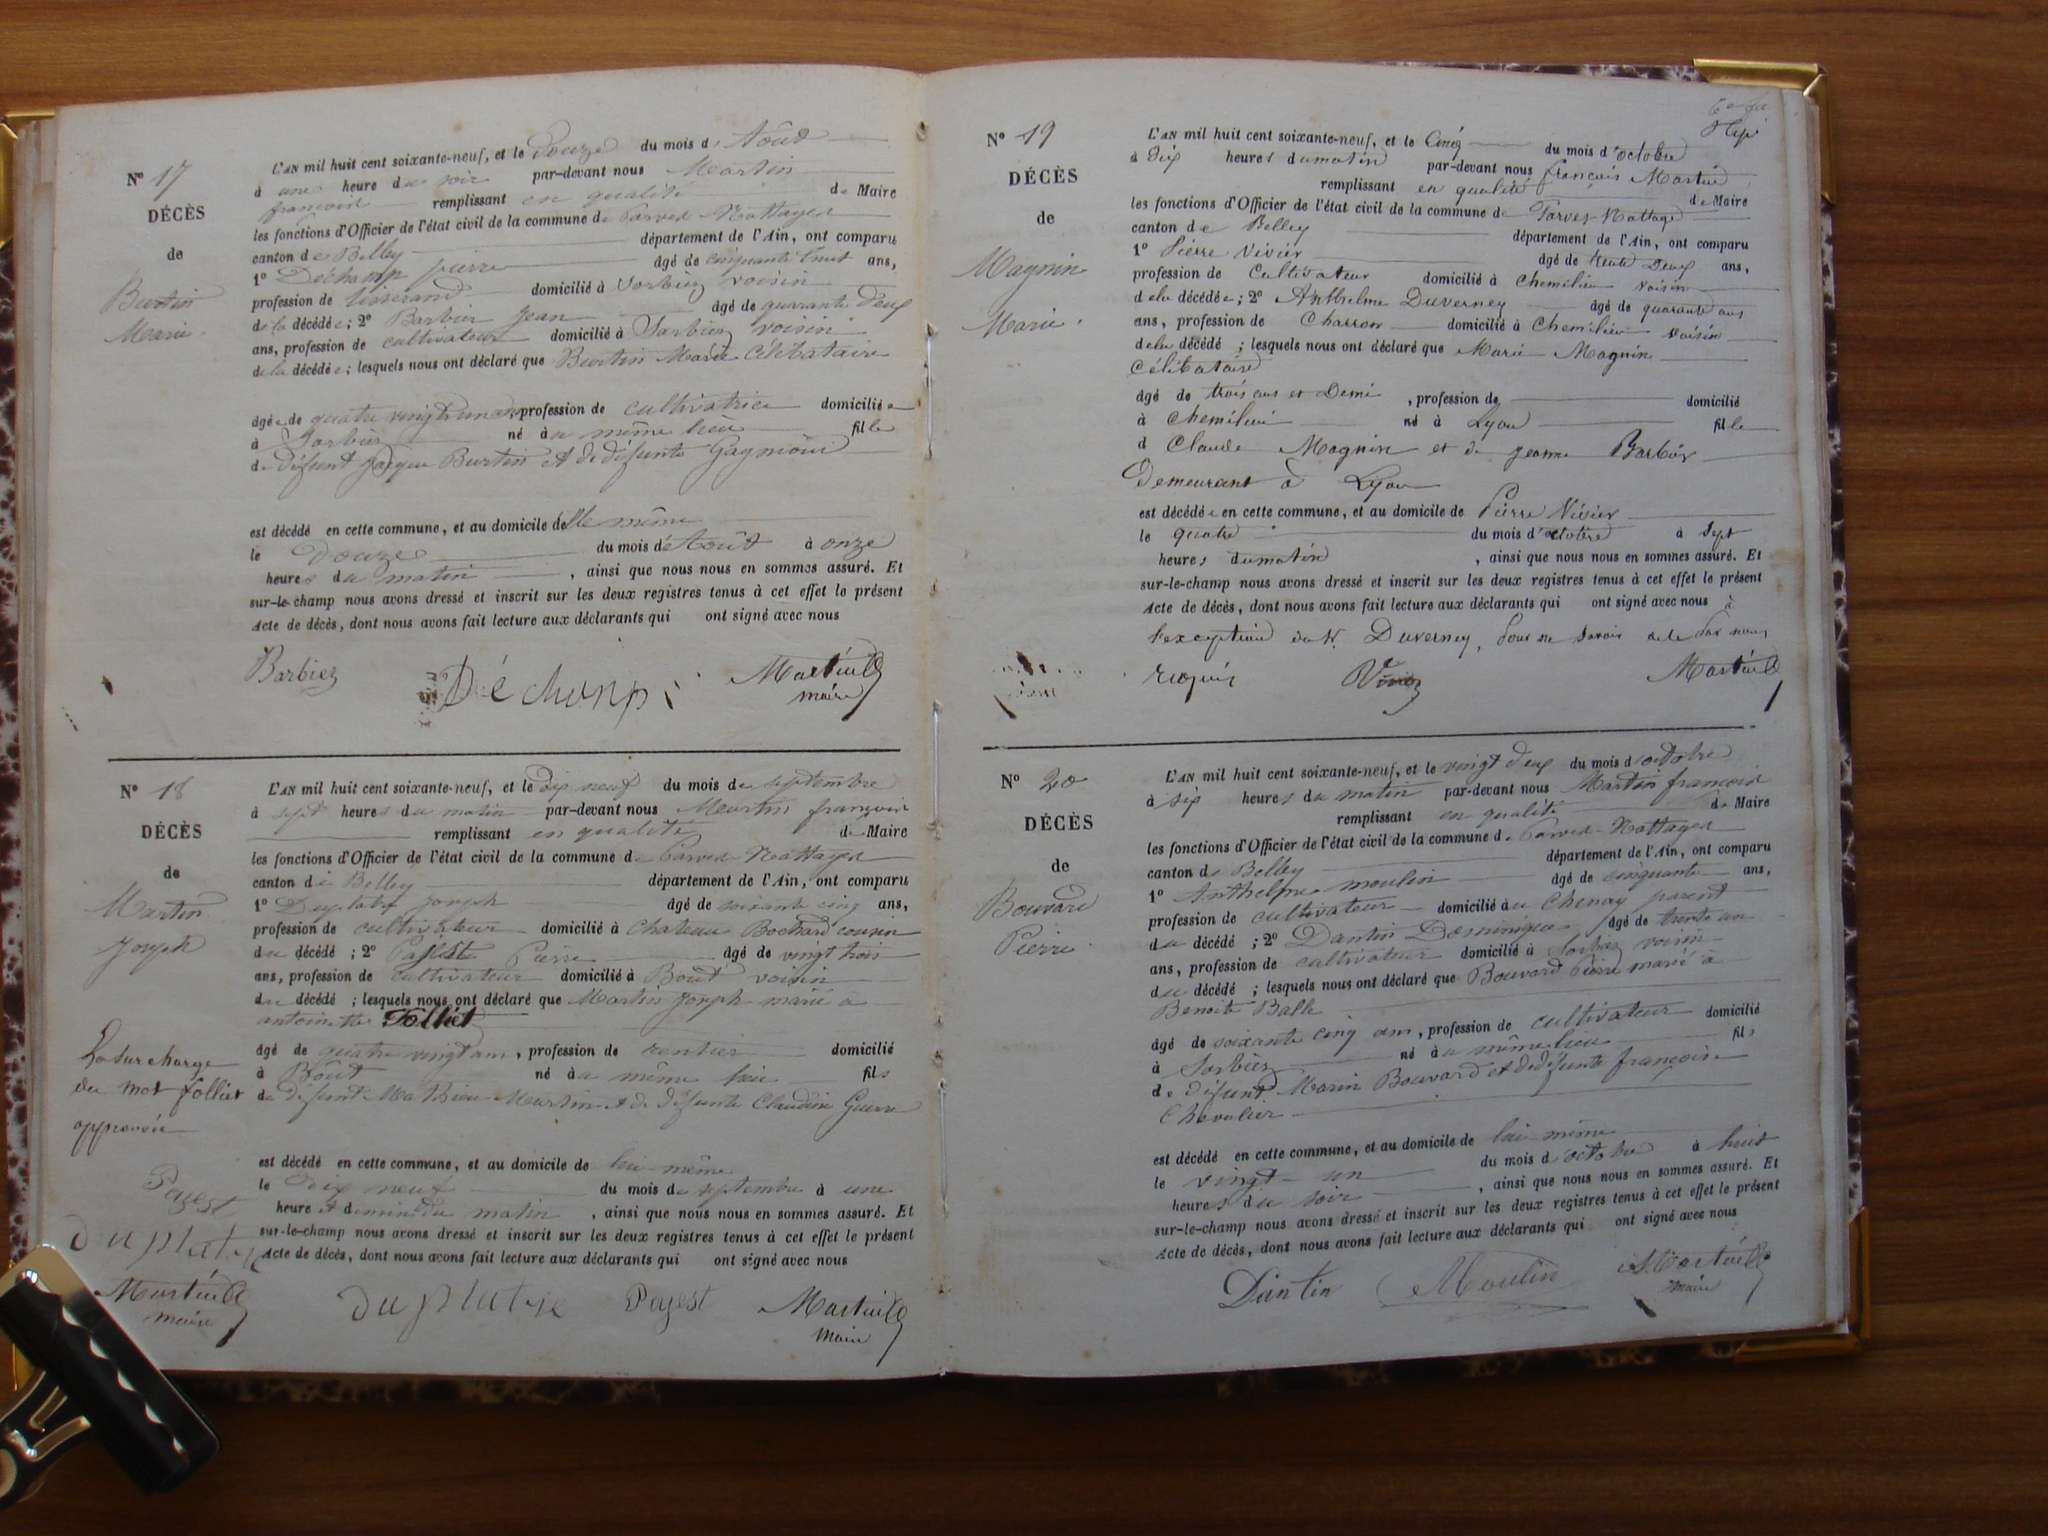 N° 17
DÉCÈS
de
Burtin
Marie.
L'AN mil huit cent soixante-neuf, et le Douze du mois d' Août
à une heure du soir par-devant nous Martin
françois remplissant en qualité de Maire
les fonctions d'Officier de l'état civil de la commune de Parves Nattages
canton de Belley département de l'Ain, ont comparu
1° Déchamp pierre âgé de cinquante huit ans,
profession de tisserand domicilié à Sorbiez voisin
de la décédée; 2° Barbier Jean âgé de quarante Deux
ans, profession de cultivateur domicilié à Sorbiez voisin
de la décédée; lesquels nous ont déclaré que Burtin Marie Célibataire
âgée de quatre vingt un ans profession de cultivatrice domiciliée
à Sorbiez né au même lieu fille
de Défunt Jacque Burtin et de défunte
est décédé en cette commune, et au domicile d'elle même
le Douze du mois d'Août à onze
heures du matin, ainsi que nous nous en sommes assuré. Et
sur-le-champ nous avons dressé et inscrit sur les deux registres tenus à cet effet le présent
Acte de décès, dont nous avons fait lecture aux déclarants qui ont signé avec nous
Barbiez Déchamp Martin
maire
N° 18
DÉCÈS
de
Martin
Joseph
L'AN mil huit cent soixante-neuf, et le Dix neuf du mois de septembre
à sept heures du matin par-devant nous Martin françois
remplissant en qualité de Maire
les fonctions d'Officier de l'état civil de la commune de Parves Nattages
canton de Belley département de l'Ain, ont comparu
1° Duplatre Joseph âgé de soixante cinq ans,
profession de cultivateur domicilié à Chateau Bochard cousin
du décédé; 2° Pierre âgé de vingt trois
ans, profession de cultivateur domicilié à Boût voisin
du décédé; lesquels nous ont déclaré que Martin Joseph marié a
antoinette Folliet
âgé de quatre vingt ans, profession de rentier domicilié
à Boût né au même lieu fils
de défunt Mathieu Martin et de défunte Claudine Guerre
La surcharge
du mot folliet
approuvée
est décédé en cette commune, et au domicile de lui même
le Dix neuf du mois de septembre à une
heure et demie du matin, ainsi que nous nous en sommes assuré. Et
sur-le-champ nous avons dressé et inscrit sur les deux registres tenus à cet effet le présent
Acte de décès, dont nous avons fait lecture aux déclarants qui ont signé avec nous
Pagest
duplatre
Martin
maire
duplatre Pagest Martin
Maire
N° 19
DÉCÈS
de
Magnin
Marie.
L'AN mil huit cent soixante-neuf, et le Cinq du mois d'octobre
à dix heures du matin par-devant nous françois Martin
remplissant en qualité de Maire
les fonctions d'Officier de l'état civil de la commune de Parves-Nattage
canton de Belley département de l'Ain, ont comparu
1° Pierre Vivier âgé de trente Deux ans,
profession de Cultivateur domicilié à Chemilieu voisin
de la décédée; 2° Anthelme Duverney âgé de quarante ans
ans, profession de Charron domicilié à Chemilieu voisin
de la décédé; lesquels nous ont déclaré que Marie Magnin
Célibataire
âgé de trois ans et Demi, profession de domicilié
à Chemilieu né à Lyon fille
d Claude Magnin et de jeanne Barbier
Demeurant à Lyon
est décédée en cette commune, et au domicile de Pierre Vivier
le quatre du mois d'octobre à sept
heures du matin, ainsi que nous nous en sommes assuré. Et
sur-le-champ nous avons dressé et inscrit sur les deux registres tenus à cet effet le présent
Acte de décès, dont nous avons fait lecture aux déclarants qui ont signé avec nous à
l'exception du Sr. Duverney, pour ne savoir
requis Vivier Martin
N° 20
DÉCÈS
de
Bouvard
Pierre.
L'AN mil huit cent soixante-neuf, et le vingt deux du mois d'octobre
à six heures du matin par-devant nous Martin francois
remplissant en qualité de Maire
les fonctions d'Officier de l'état civil de la commune de Parves-Nattages
canton de Belley département de l'Ain, ont comparu
1° Anthelme moulin âgé de cinquante ans,
profession de cultivateur domicilié au Chenay parent
du décédé; 2° Dantin Dominique âgé de trente un
ans, profession de cultivateur domicilié à Sorbiez voisin
du décédé; lesquels nous ont déclaré que Bouvard Pierre marié a
Benoite Balle
âgé de soixante cinq ans, profession de cultivateur domicilié
à Sorbiez né au même lieu fils
de défunt Marin Bouvard et de défunte françoise
Chevalier
est décédé en cette commune, et au domicile de lui même
le vingt-un du mois d'octobre à huit
heures du soir, ainsi que nous nous en sommes assuré. Et
sur-le-champ nous avons dressé et inscrit sur les deux registres tenus à cet effet le présent
Acte de décès, dont nous avons fait lecture aux déclarants qui ont signé avec nous
Dantin Moulin Martin
maire